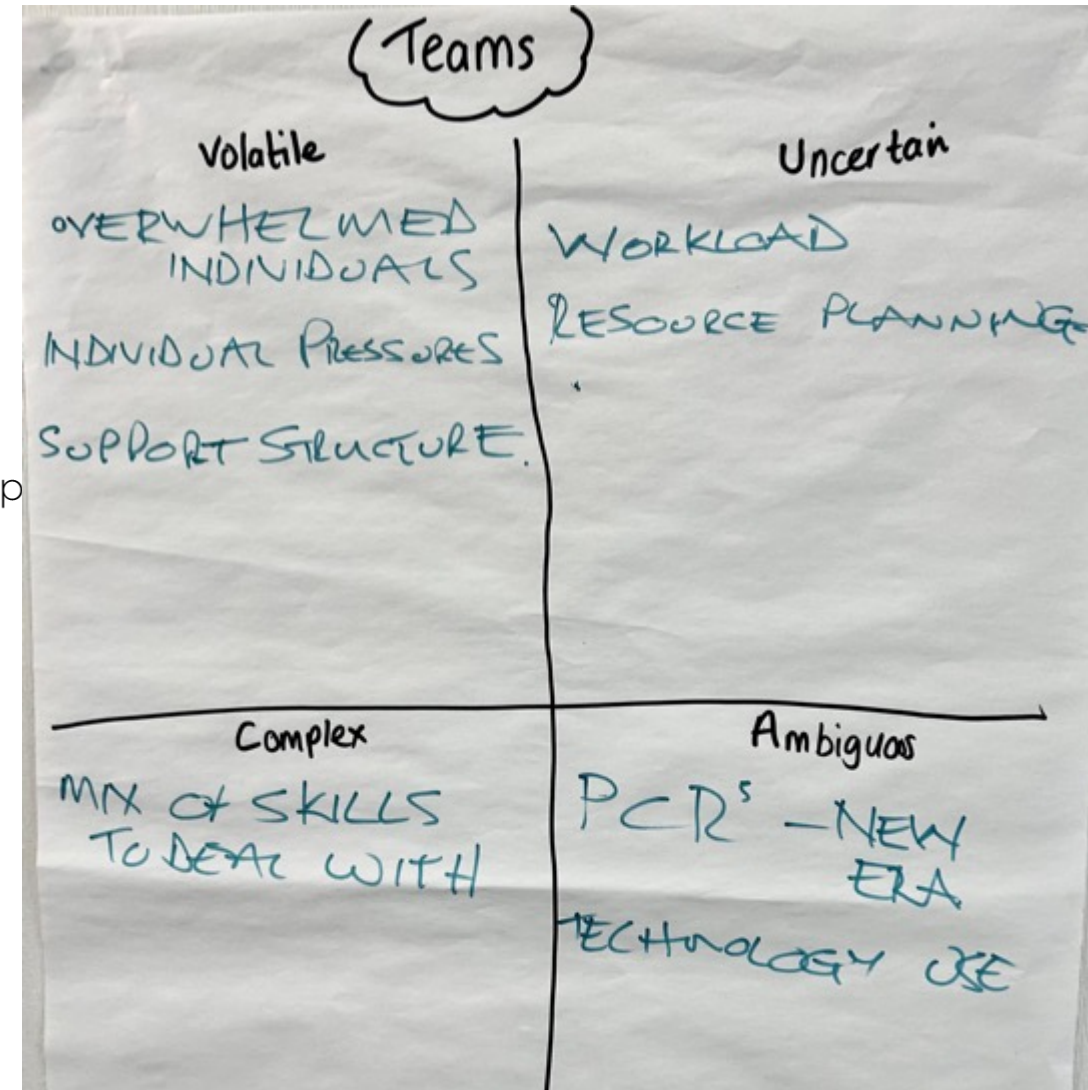 Teams
Volatile
OVERWHELMED
INDIVIDUALS
INDIVIDUAL PRESSURES
SUPPORT STRUCTURE.
Uncertain
WORKLOAD
RESOURCE PLANNING
p
Complex
MIX of SKILLS
TO DEAL WITH
Ambiguos
PCRs - NEW
ERA
TECHNOLOGY USE